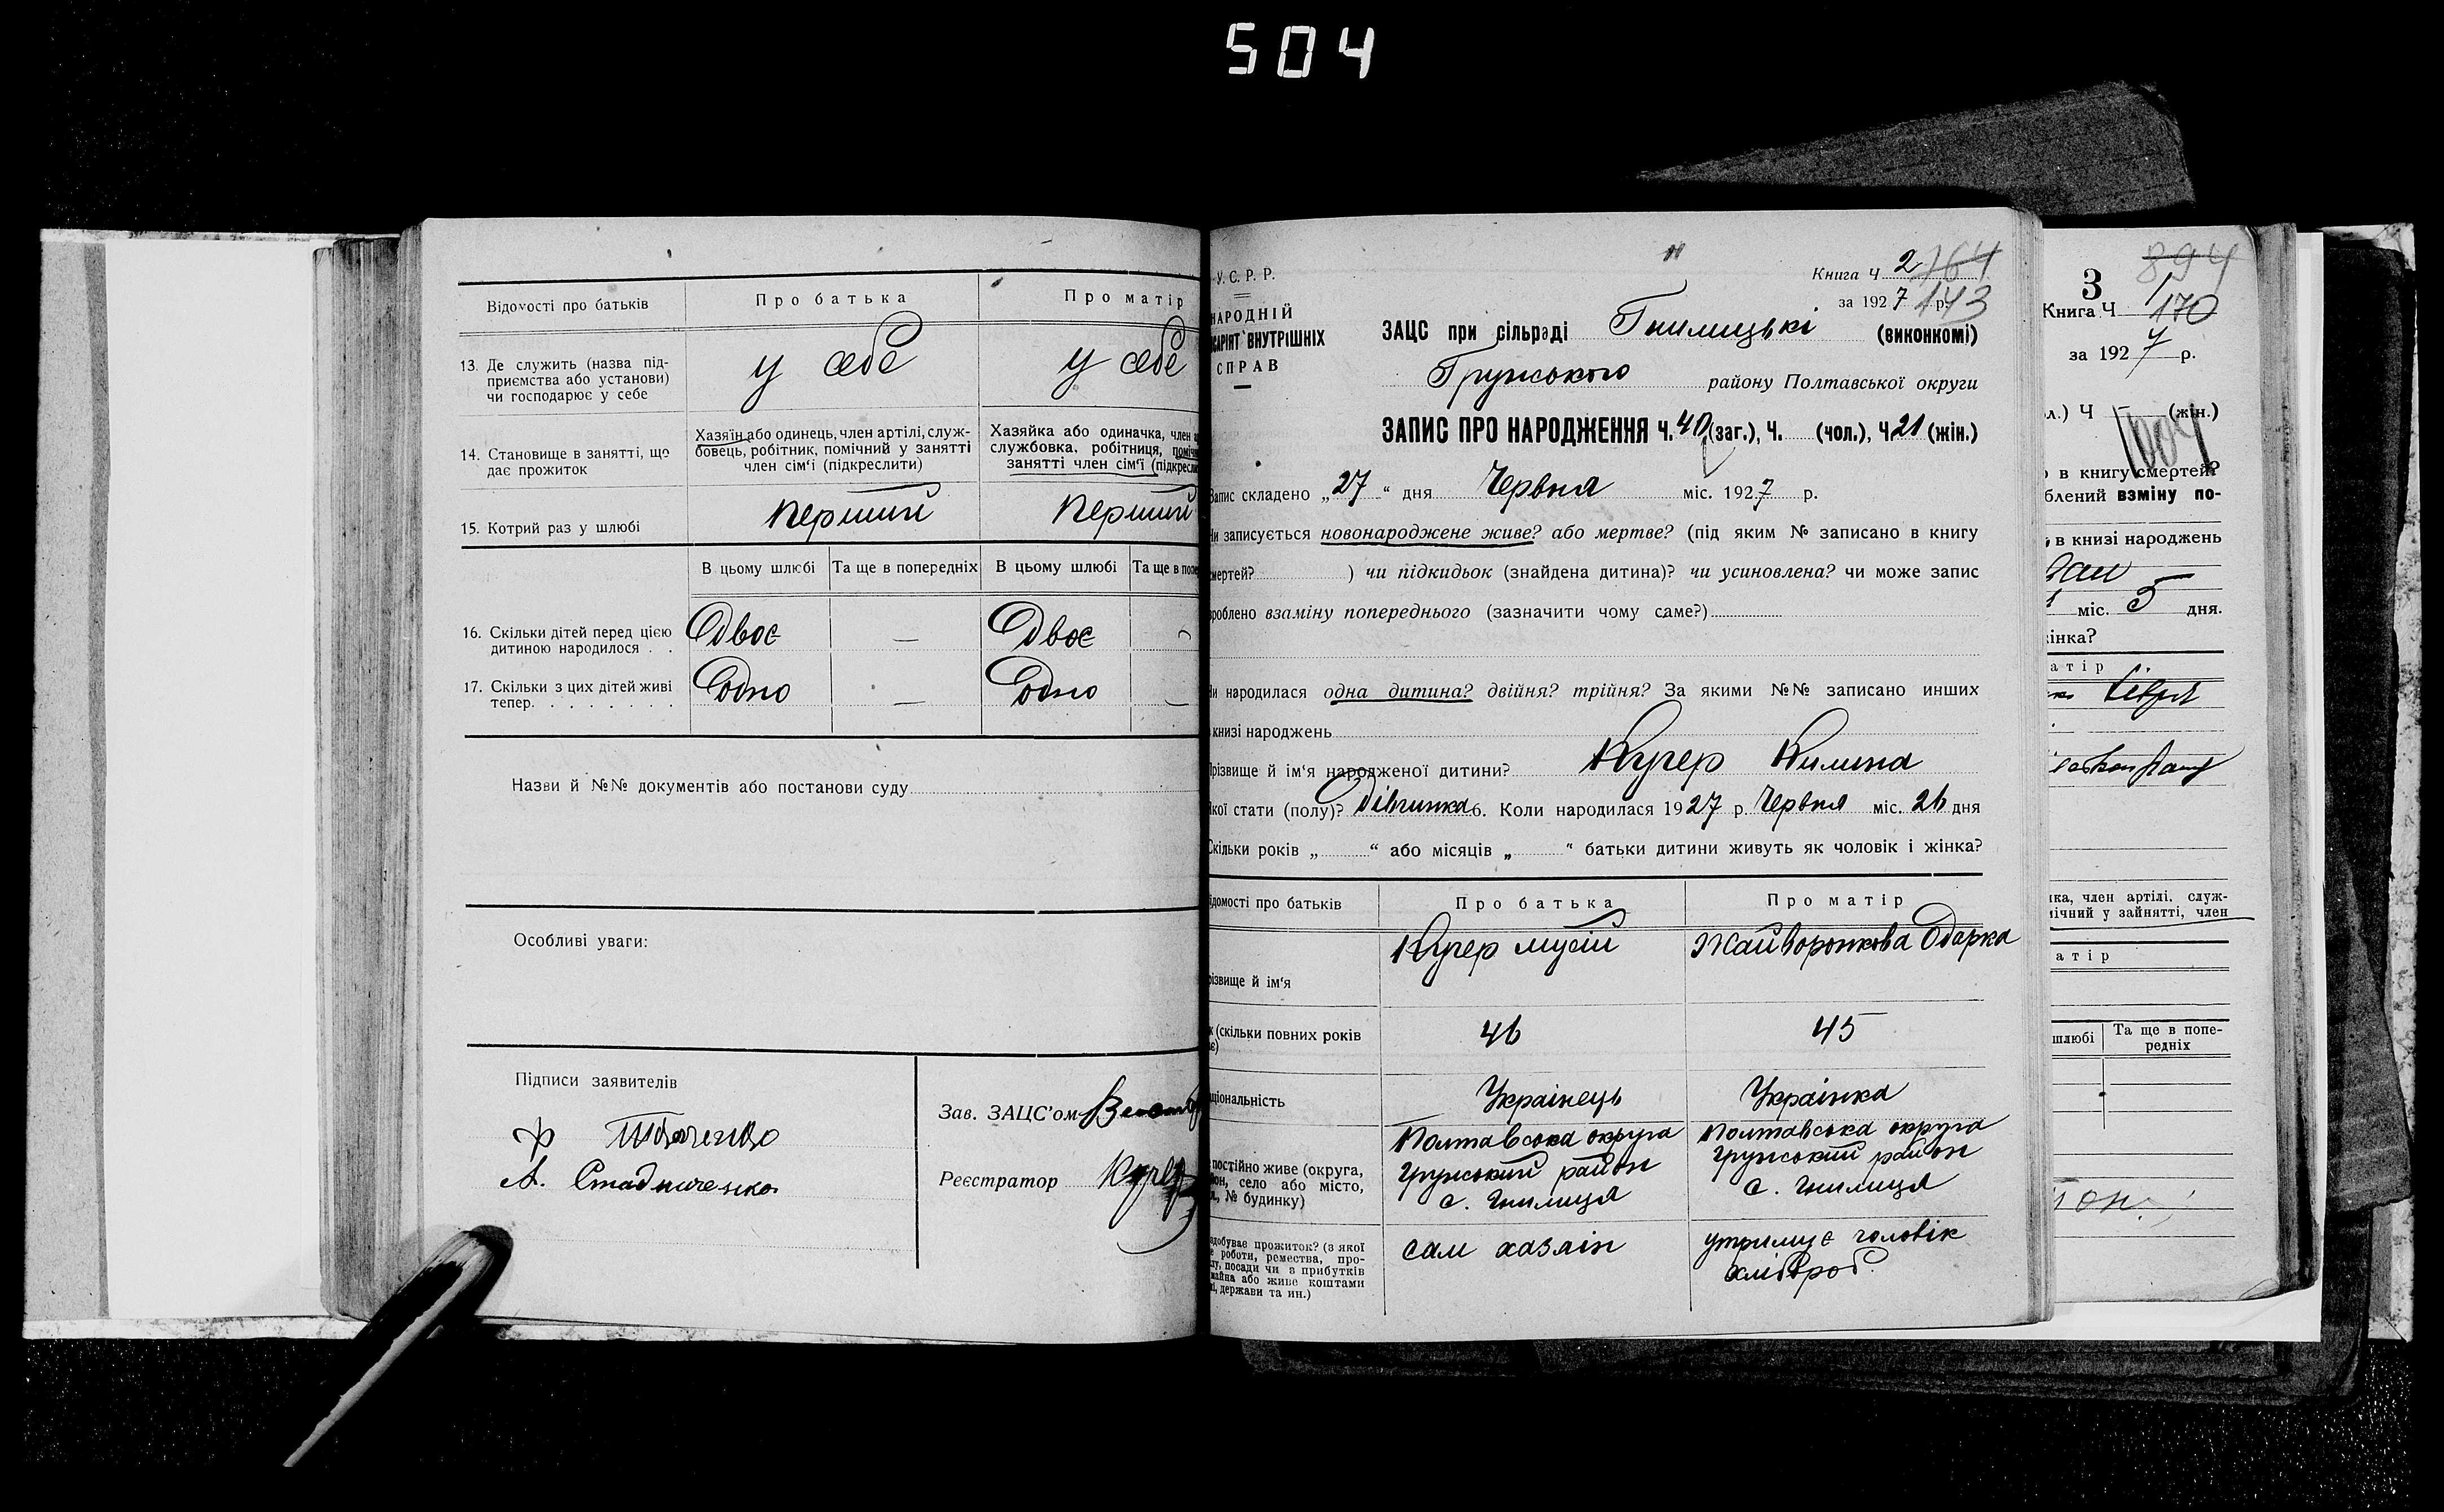 504
Відомості про батьків
Про батька
Про матір
13. Де служить (назва під-
приємства або установи)
чи господарює у себе
у себе
у себе
14. Становище в занятті, що
дає прожиток
Хазяїн або одинець, член артілі, служ-
бовець, робітник, помічний у занятті
член сім'ї (підкреслити)
Хазяйка або одиначка, член а
службовка, робітниця, поміч
занятті член сім'ї (підкресли
15. Котрий раз у шлюбі
Перший
Перший
В цьому шлюбі
Та ще в попередніх
В цьому шлюбі
Та ще в попе
16. Скільки дітей перед цією
дитиною народилося . .
Двоє
—
Двоє
17. Скільки з цих дітей живі
тепер. . . . . . . .
Одно
—
Одно
—
Назви й №№ документів або постанови суду
Особливі уваги:
Підписи заявителів
Ф Ткаченко
А. Стадниченко
Зав. ЗАЦС'ом
Реєстратор Кучер
У. С. Р. Р.
НАРОДНІЙ
САРІЯТ ВНУТРІШНІХ
СПРАВ
Книга Ч 2 764
за 1927 р. 143
ЗАЦС при сільраді Гнилицькі (виконкомі)
Грунського району Полтавської округи
ЗАПИС ПРО НАРОДЖЕННЯ Ч. 40 (заг.), Ч. (чол.), Ч 21 (жін.)
Запис складено „27“ дня Червня міс. 1927 р.
Чи записується новонароджене живе? або мертве? (під яким № записано в книгу
смертей? ) чи підкидьок (знайдена дитина)? чи усиновлена? чи може запис
зроблено взаміну попереднього (зазначити чому саме?)
Чи народилася одна дитина? двійня? трійня? За якими №№ записано инших
книзі народжень
Прізвище й ім'я народженої дитини? Кучер Килина
Якої стати (полу)? Дівчинка 6. Коли народилася 1927 р. Червня міс. 26 дня
Скільки років „ “ або місяців „ “ батьки дитини живуть як чоловік і жінка?
ідомості про батьків
Про батька
Про матір
різвище й ім'я
Кучер Мусій
Жайворонкова Одарка
к (скільки повних років
є)
46
45
ціональність
Українець
Українка
постійно живе (округа,
йон, село або місто,
я, № будинку)
Полтавська округа
Грунський район
с. Гнилиця
Полтавська округа
Грунський район
с. Гнилиця
здобуває прожиток? (з якої
е роботи, ремества, про-
лу, посади чи з прибутків
майна або живе коштами
ні, держави та ин.)
сам хазяін
утримує чоловік
хлібороб
894
3
Книга Ч 1
170
за 1927 р.
ол.) Ч (жін.)
о в книгу смертей?
блений взміну по-
в книзі народжень
міс. 5 дня.
інка?
атір
ка, член артілі, служ-
мічний у зайнятті, член
атір
шлюбі
Та ще в попе-
редніх